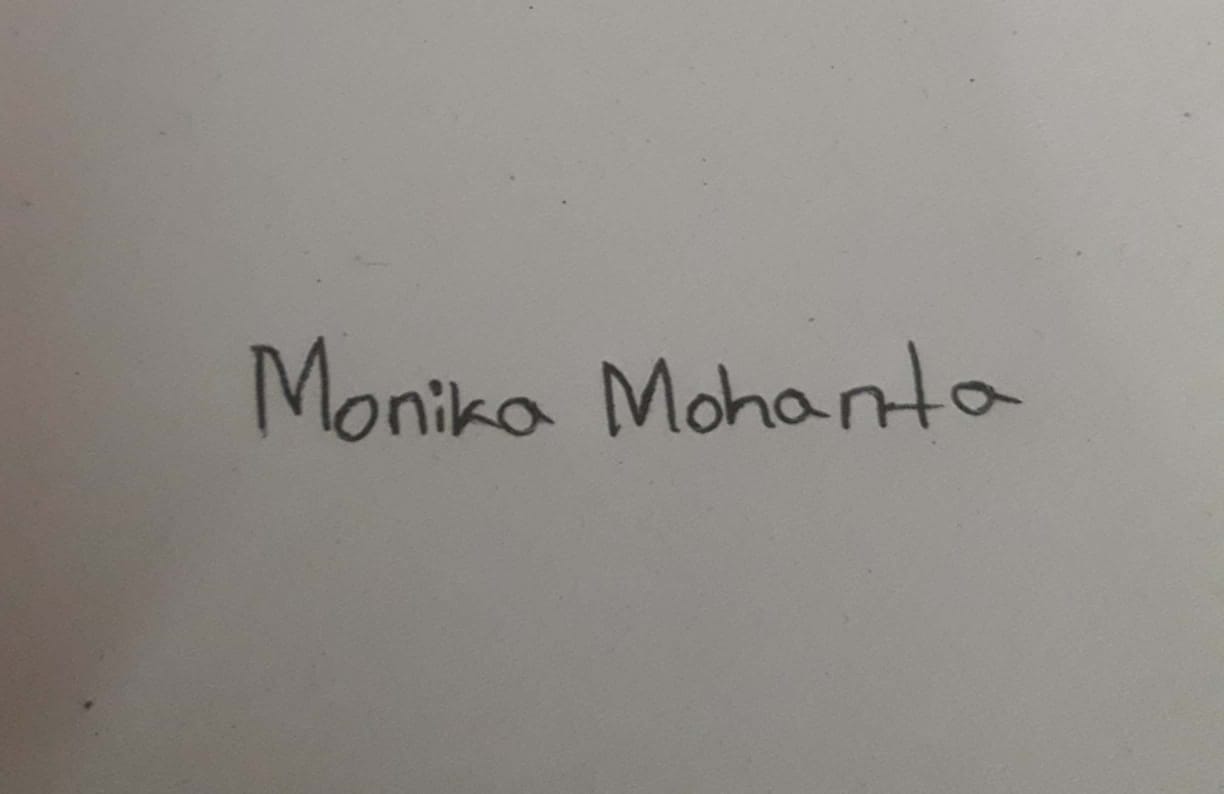 Monika Mohanta